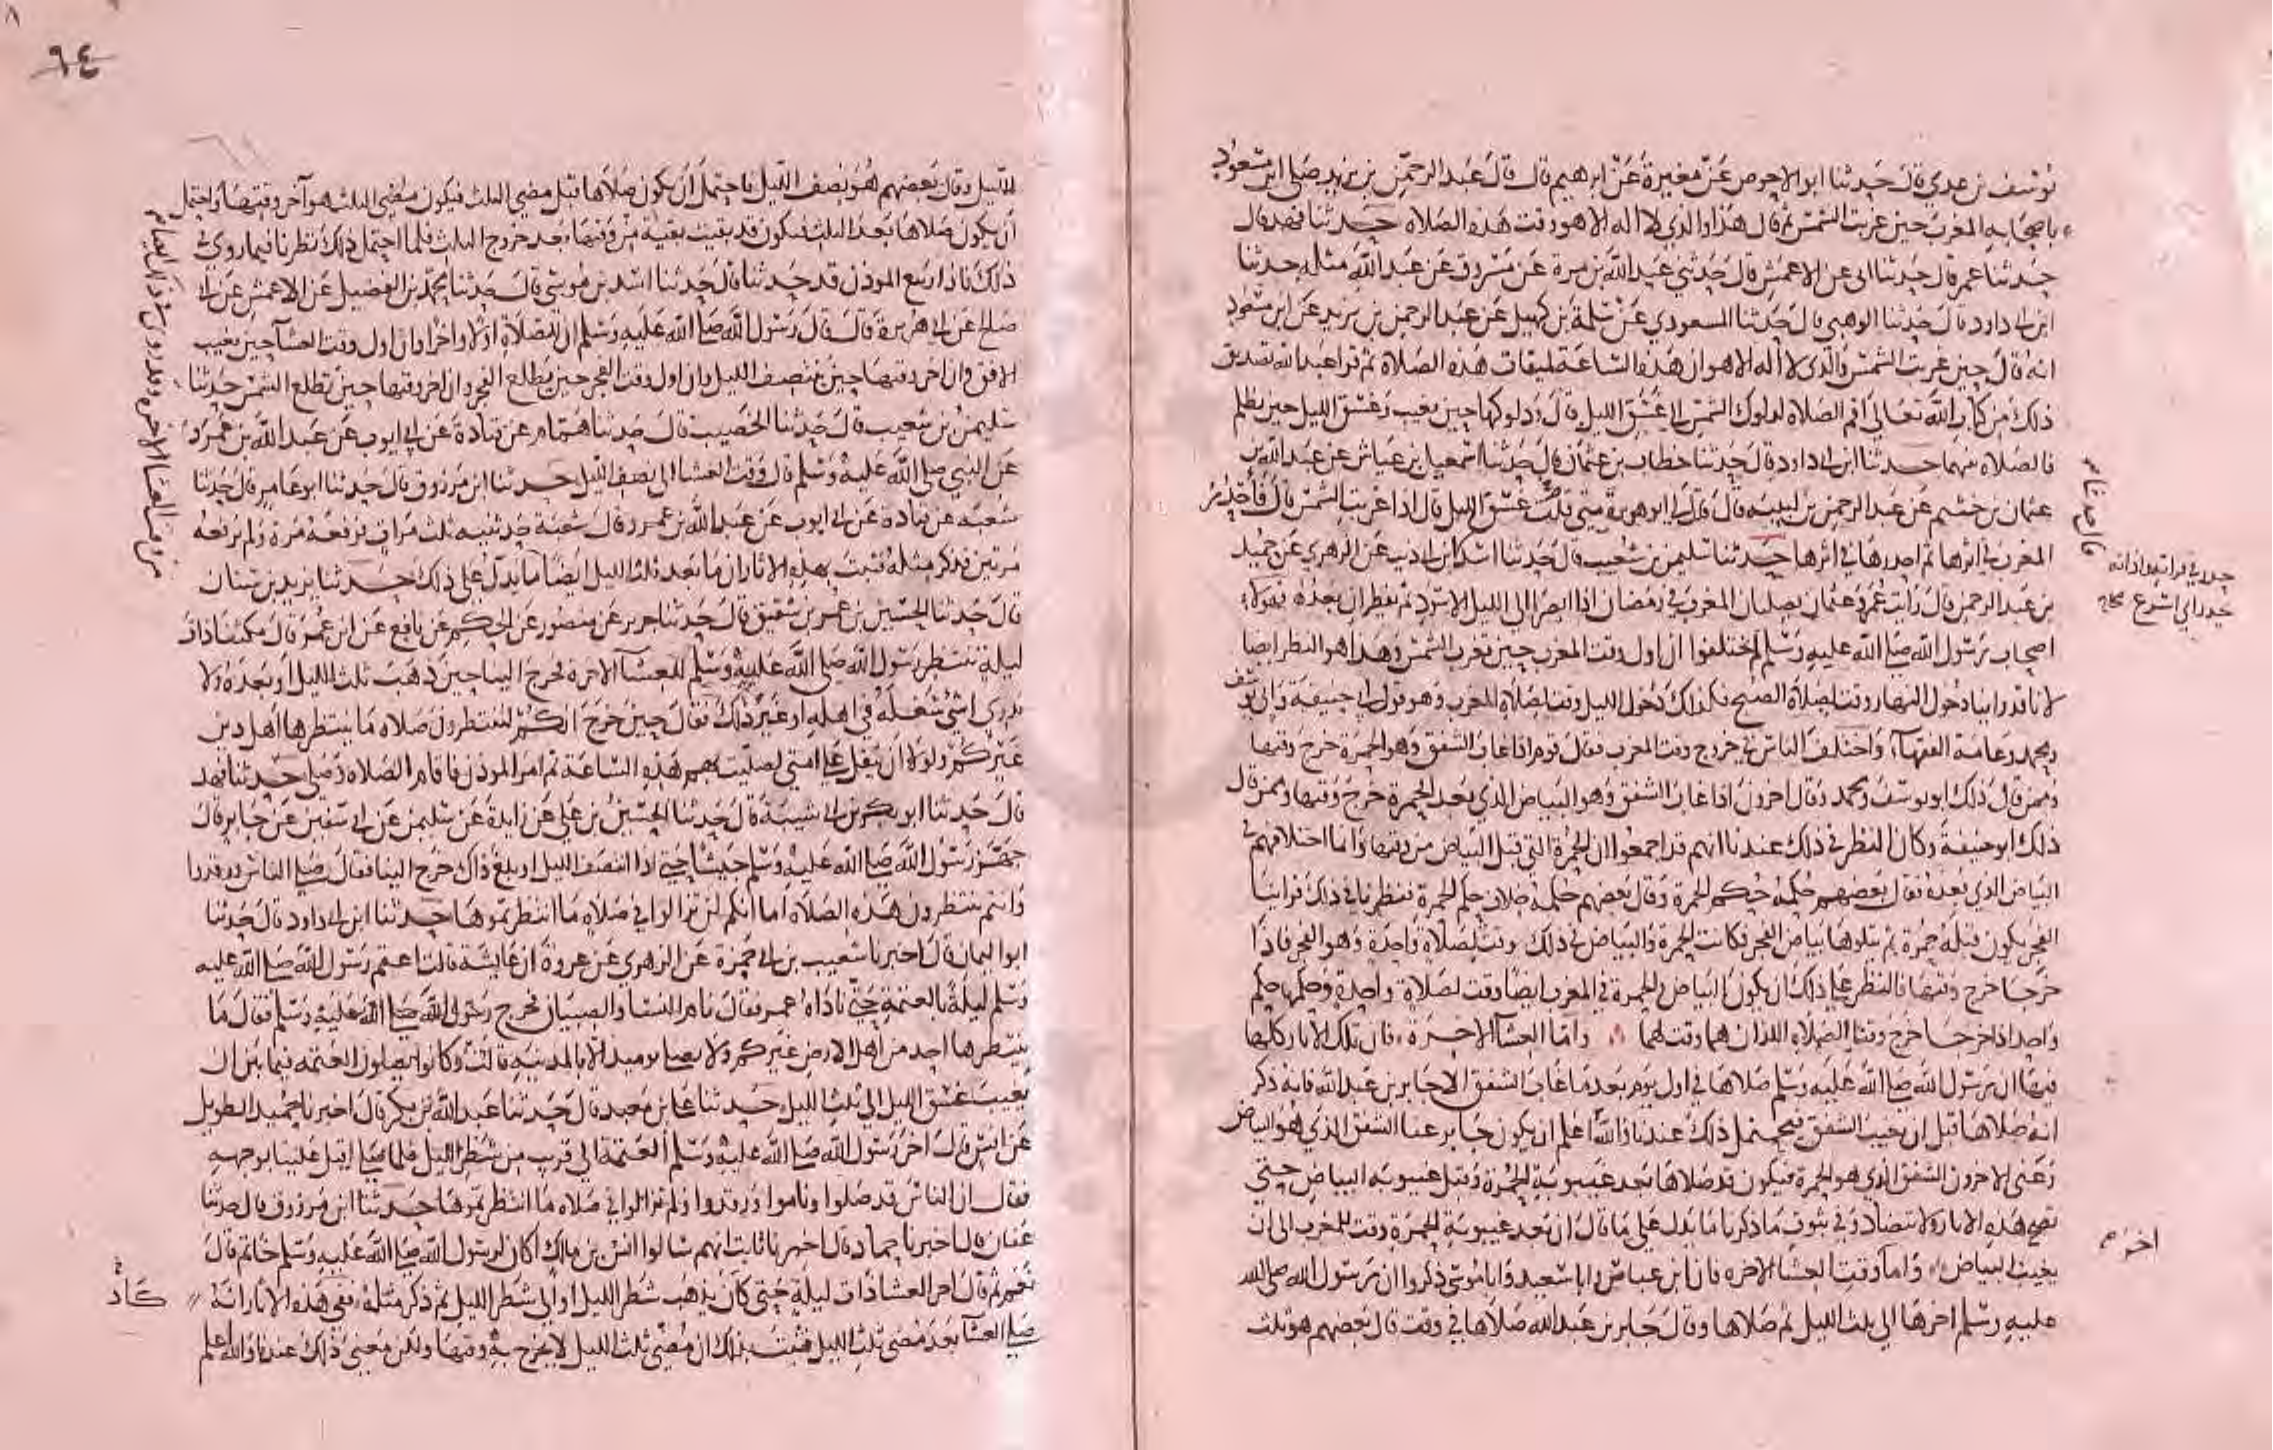 يوسف بن عدي قال حدثنا ابو الاحوص عن مغيرة عن ابرهيم قال قال عبد الرحمن بن يزيد صلى ابن مسعود
باصحابه المغرب حين غربت الشمس ثم قال هذا والذي لا اله الا هو وقت هذه الصلاة حدثنا فهد قال
حدثنا عمر قال حدثنا ابي عن الاعمش قال حدثني عبد الله بن مرة عن مسروق عن عبد الله مثله حدثنا
ابن ابي داود قال حدثنا الوهبي قال حدثنا المسعودي عن سلمة بن كهيل عن عبد الرحمن بن يزيد عن ابن مسعود
انه قال حين غربت الشمس والذي لا اله الا هو ان هذه الساعة لميقات هذه الصلاة ثم قرا عبد الله تصديق
ذلك من كتاب الله تعالى اقم الصلاة لدلوك الشمس الى غسق الليل قال ودلوكها حين تغيب وغسق الليل حين يظلم
فالصلاة بينهما حدثنا ابن ابي داود قال حدثنا خطاب بن عثمان قال حدثنا اسمعيل بن عياش عن عبد الله بن
عثمان بن خثيم عن عبد الرحمن بن لبيبة قال قال لي ابو هريرة متى غسق الليل قال اذا غربت الشمس قال فاحدر
المغرب في اثرها ثم احدرها في اثرها حدثنا سليمن بن شعيب قال حدثنا اسد ابن ابي ذيب عن الزهري عن حميد
بن عبد الرحمن قال رايت عمر وعثمان يصليان المغرب في رمضان اذا ابصرا الى الليل الاسود ثم يفطران بعده فهولاء
اصحاب رسول الله صلى الله عليه وسلم لم يختلفوا ان اول وقت المغرب حين تغرب الشمس وهذا هو النظر ايضا
لانا قد راينا دخول النهار وقت لصلاة الصبح فكذلك دخول الليل وقت لصلاة المغرب وهو قول ابي حنيفة وابي يوسف
ومحمد وعامة الفقهاء واختلف الناس في خروج وقت المغرب فقال قوم اذا غاب الشفق وهو الحمرة خرج وقتها
وممن قال ذلك ابو يوسف ومحمد وقال اخرون اذا غاب الشفق وهو البياض الذي بعد الحمرة خرج وقتها وممن قال
ذلك ابو حنيفة وكان النظر في ذلك عندنا انهم قد اجمعوا ان الحمرة التي قبل البياض من وقتها وانما اختلافهم في
البياض الذي بعده فقال بعضهم حكمه حكم الحمرة وقال بعضهم حكمه خلاف حكم الحمرة فنظرنا في ذلك فراينا
الفجر يكون قبله حمرة ثم يتلوها بياض الفجر فكانت الحمرة والبياض في ذلك وقت لصلاة واحدة وهو الفجر فاذا
خرجا خرج وقتها فالنظر على ذلك ان يكون البياض والحمرة في المغرب ايضا وقت لصلاة واحدة وحكمها حكم
واحد اذا خرجا خرج وقتا الصلاة اللذان هما وقت لهما واما العشاء الاخرة فان تلك الاثار كلها
فيها ان رسول الله صلى الله عليه وسلم صلاها في اول يوم بعد ما غاب الشفق الا جابر بن عبد الله فانه ذكر
انه صلاها قبل ان يغيب الشفق فيحتمل ذلك عندنا والله اعلم ان يكون جابر عنا الشفق الذي هو البياض
وعنى الاخرون الشفق الذي هو الحمرة فيكون قد صلاها بعد غيبوبة الحمرة وقبل غيبوبة البياض حتى
تصح هذه الاثار ولا تتضاد وفي ثبوت ما ذكرنا ما يدل على ما قال ان بعد غيبوبة الحمرة وقت للمغرب الى ان
يغيب البياض واما وقت العشاء الاخره فان ابن عباس وابا سعيد وابا موسى ذكروا ان رسول الله صلى الله
عليه وسلم اخرها الى ثلث الليل ثم صلاها وقال جابر بن عبد الله صلاها في وقت قال بعضهم هو ثلث
قال حدثنا
اخر
٩٤
الليل وقال بعضهم هو نصف الليل فاحتمل ان يكون صلاها قبل مضي الثلث فيكون مضي الثلث هو آخر وقتها واحتمل
ان يكون صلاها بعد الثلث فيكون قد بقيت بقية من وقتها بعد خروج الثلث فلما احتمل ذلك نظرنا فيما روي في
ذلك فاذا ربيع الموذن قد حدثنا قال حدثنا اسد بن موسى قال حدثنا محمد بن الفضيل عن الاعمش عن ابي
صالح عن ابي هريرة قال قال رسول الله صلى الله عليه وسلم ان للصلاة اولا واخرا وان اول وقت العشا حين يغيب
الافق وان اخر وقتها حين ينتصف الليل وان اول وقت الفجر حين يطلع الفجر وان اخر وقتها حين تطلع الشمس حدثنا
سليمن بن شعيب قال حدثنا الخصيب قال حدثنا همام عن قتادة عن ابي ايوب عن عبد الله بن عمرو
عن النبي صلى الله عليه وسلم قال وقت العشا الى نصف الليل حدثنا ابن مرزوق قال حدثنا ابو عامر قال حدثنا
شعبه عن قتادة عن ابي ايوب عن عبد الله بن عمرو قال شعبة حدثنيه ثلث مرات فرفعه مرة ولم يرفعه
مرتين فذكر مثله فثبت بهذه الاثار ان ما بعد ثلث الليل ايضا ما يدل على ذلك حدثنا يزيد بن سنان
قال حدثنا الحسين بن عمر بن شقيق قال حدثنا جرير عن منصور عن الحكم عن نافع عن ابن عمر قال مكثنا ذات
ليلة ننتظر رسول الله صلى الله عليه وسلم للعشاء الاخرة فخرج الينا حين ذهب ثلث الليل او بعده ولا
ندري اشي شغله في اهله او غير ذلك فقال حين خرج انكم لتنتظرون صلاة ما ينتظرها اهل دين
غيركم ولولا ان يثقل على امتي لصليت بهم هذه الساعة ثم امر الموذن فاقام الصلاة وصلى حدثنا فهد
قال حدثنا ابو بكر بن ابي شيبة قال حدثنا الحسين بن علي عن زايدة عن سليمن عن ابي سفين عن جابر قال
جهز رسول الله صلى الله عليه وسلم جيشا حتى اذا انتصف الليل او بلغ ذاك خرج الينا فقال صلى الناس ورقدوا
وانتم تنتظرون هذه الصلاة اما انكم لن تزالوا في صلاة ما انتظرتموها حدثنا ابن ابي داود قال حدثنا
ابو اليمان قال اخبرنا شعيب بن ابي حمزة عن الزهري عن عروة ان عايشة قالت اعتم رسول الله صلى الله عليه
وسلم ليلة بالعتمة حتى ناداه عمر فقال نام النسا والصبيان فخرج رسول الله صلى الله عليه وسلم فقال ما
ينتظرها احد من اهل الارض غيركم ولا يصلى يوميذ الا بالمدينة قالت وكانوا يصلون العتمه فيما بين ان
يغيب غسق الليل الى ثلث الليل حدثنا علي بن معبد قال حدثنا عبد الله بن بكر قال اخبرنا حميد الطويل
عن انس قال اخر رسول الله صلى الله عليه وسلم العتمة الى قريب من شطر الليل فلما صلى اقبل علينا بوجهه
فقال ان الناس قد صلوا وناموا ورقدوا ولم تزالوا في صلاة ما انتظرتموها حدثنا ابن مرزوق قال حدثنا
عفان قال اخبرنا حماد قال اخبرنا ثابت انهم سالوا انس بن مالك اكان لرسول الله صلى الله عليه وسلم خاتم قال
نعم ثم قال اخر العشا ذات ليلة حتى كان يذهب شطر الليل او الى شطر الليل ثم ذكر مثله ففي هذه الاثار انه
صلى العشاء بعد مضي ثلث الليل فثبت بذلك ان مضي ثلث الليل لا يخرج به وقتها ولكن معنى ذلك عندنا والله اعلم